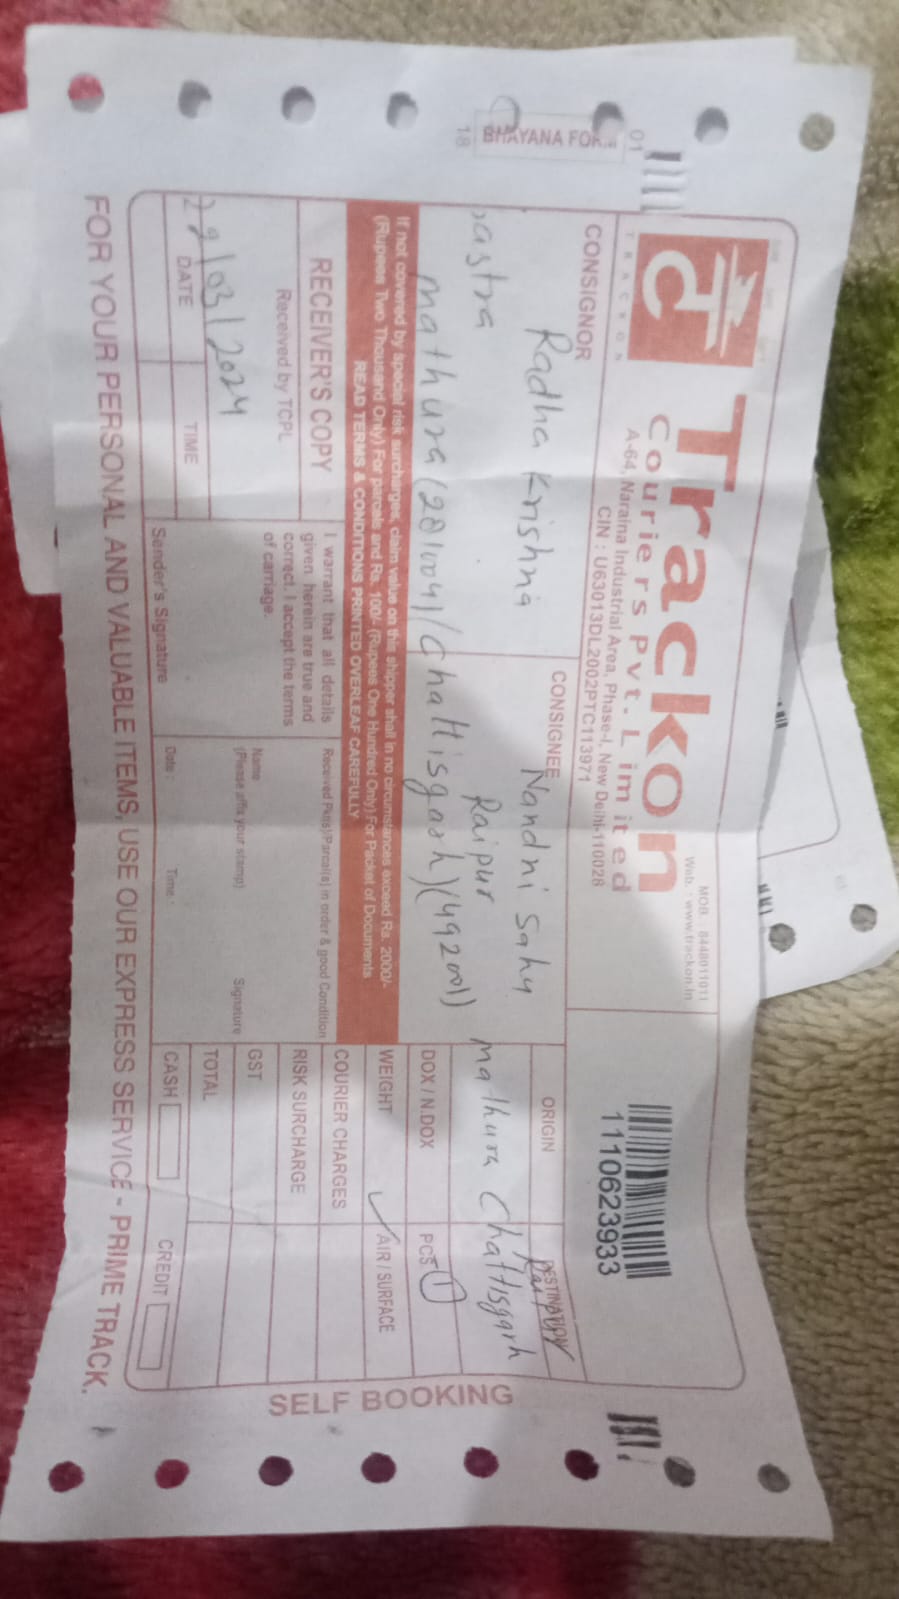 BHAYANA FORM
01
18
TRACKON
Trackon
Couriers Pvt. Limited
A-64, Naraina Industrial Area, Phase-I, New Delhi-110028
CIN : U63013DL2002PTC113971
MOB : 8448011011
Web. : www.trackon.in
1110623933
CONSIGNOR
Radha Krishna
mathura (281004)
CONSIGNEE
Nandni Sahu
Raipur
(Chattisgarh) (492001)
ORIGIN
mathura
DESTINATION
Raipur
Chattisgarh
DOX / N.DOX
PCS 1
WEIGHT
AIR / SURFACE
COURIER CHARGES
RISK SURCHARGE
GST
TOTAL
CASH
CREDIT
If not covered by special risk surcharge, claim value on this shipper shall in no circumstances exceed Rs. 2000/-
(Rupees Two Thousand Only) For parcels and Rs. 100/- (Rupees One Hundred Only) For Packet of Documents
READ TERMS & CONDITIONS PRINTED OVERLEAF CAREFULLY
RECEIVER'S COPY
Received by TCPL
/03/2024
DATE
TIME
I warrant that all details
given herein are true and
correct. I accept the terms
of carriage.
Sender's Signature
Received Pkt(s)/Parcel(s) in order & good Condition
Name
(Please affix your stamp)
Signature
Date :
Time :
FOR YOUR PERSONAL AND VALUABLE ITEMS, USE OUR EXPRESS SERVICE - PRIME TRACK.
SELF BOOKING